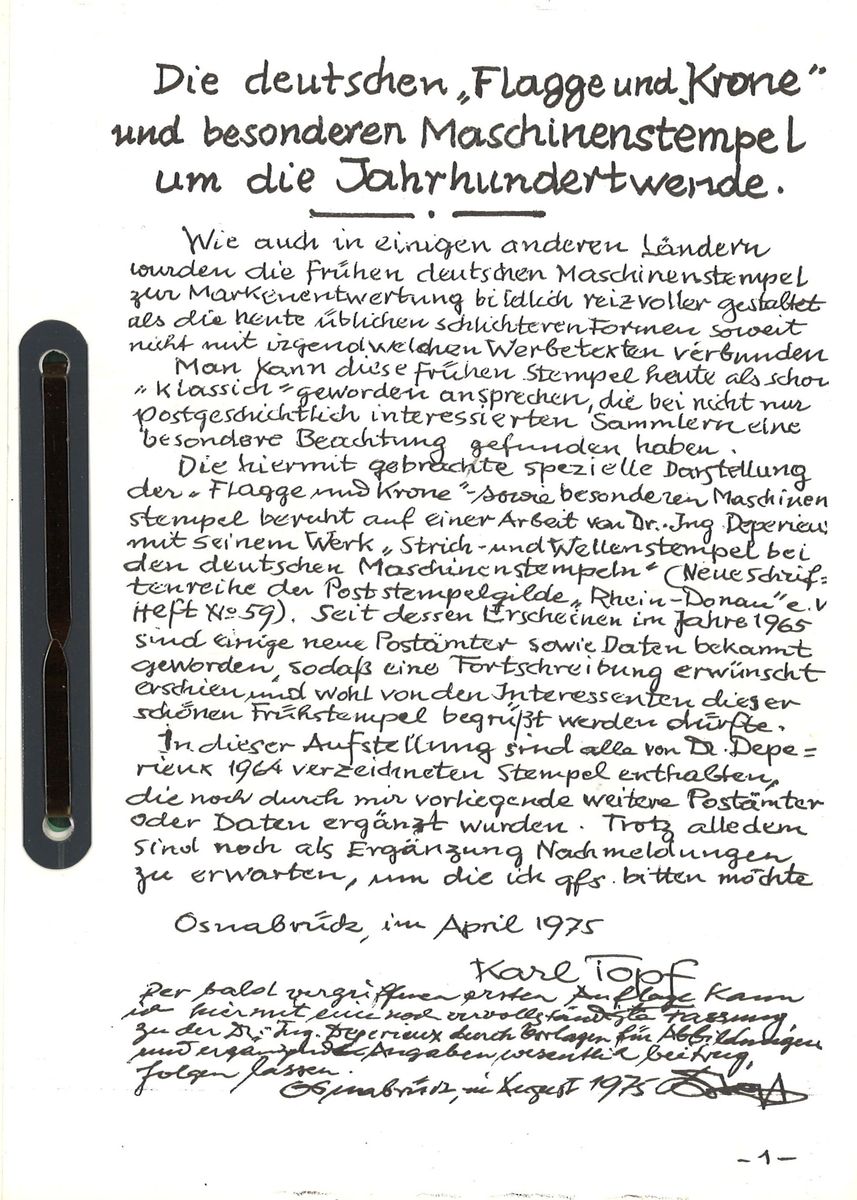 Die deutschen „Flagge und Krone"
und besonderen Maschinenstempel
um die Jahrhundertwende.
Wie auch in einigen anderen Ländern
wurden die frühen deutschen Maschinenstempel
zur Markenentwertung bildlich reizvoller gestaltet
als die heute üblichen schlichteren Formen soweit
nicht mit irgendwelchen Werbetexten verbunden
Man kann diese frühen Stempel heute als schon
„Klassich" geworden ansprechen, die bei nicht nur
postgeschichtlich interessierten Sammlern eine
besondere Beachtung gefunden haben.
Die hiermit gebrachte spezielle Darstellung
der „Flagge und Krone"- sowie besonderen Maschinen
stempel beruht auf einer Arbeit von Dr.-Ing Deperieux
mit seinem Werk „Strich- und Wellenstempel bei
den deutschen Maschinenstempeln" (Neue Schrif=
tenreihe der Poststempelgilde „Rhein-Donau" e.V
Heft No 59). Seit dessen Erscheinen im Jahre 1965
sind einige neue Postämter sowie Daten bekannt
geworden, sodaß eine Fortschreibung erwünscht
erschien und wohl von den Interessenten dieser
schönen Frühstempel begrüßt werden dürfte.
In dieser Aufstellung sind alle von Dr. Depe=
rieux 1964 verzeichneten Stempel enthalten,
die noch durch mir vorliegende weitere Postämter
oder Daten ergänzt wurden. Trotz alledem
sind noch als Ergänzung Nachmeldungen
zu erwarten, um die ich gfs. bitten möchte
Osnabrück, im April 1975
Karl Topf
Der bald vergriffenen ersten Auflage kann
ich hiermit eine noch vervollständigte Fassung,
zu der Dr.-Ing. Deperieux durch Vorlagen für Abbildungen
und ergänzende Angaben wesentlich beitrug,
folgen lassen.
Osnabrück, im August 1975
- 1 -